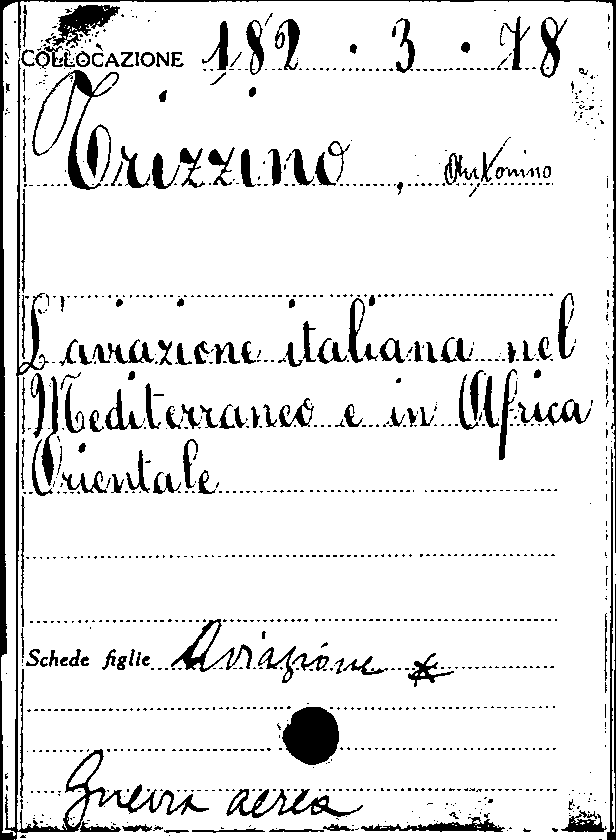 COLLOCAZIONE 182 . 3 . 78
Trizzino, Antonino
L'aviazione italiana nel
Mediterraneo e in Africa
Orientale
Schede figlie Aviazione *
Guerra aerea